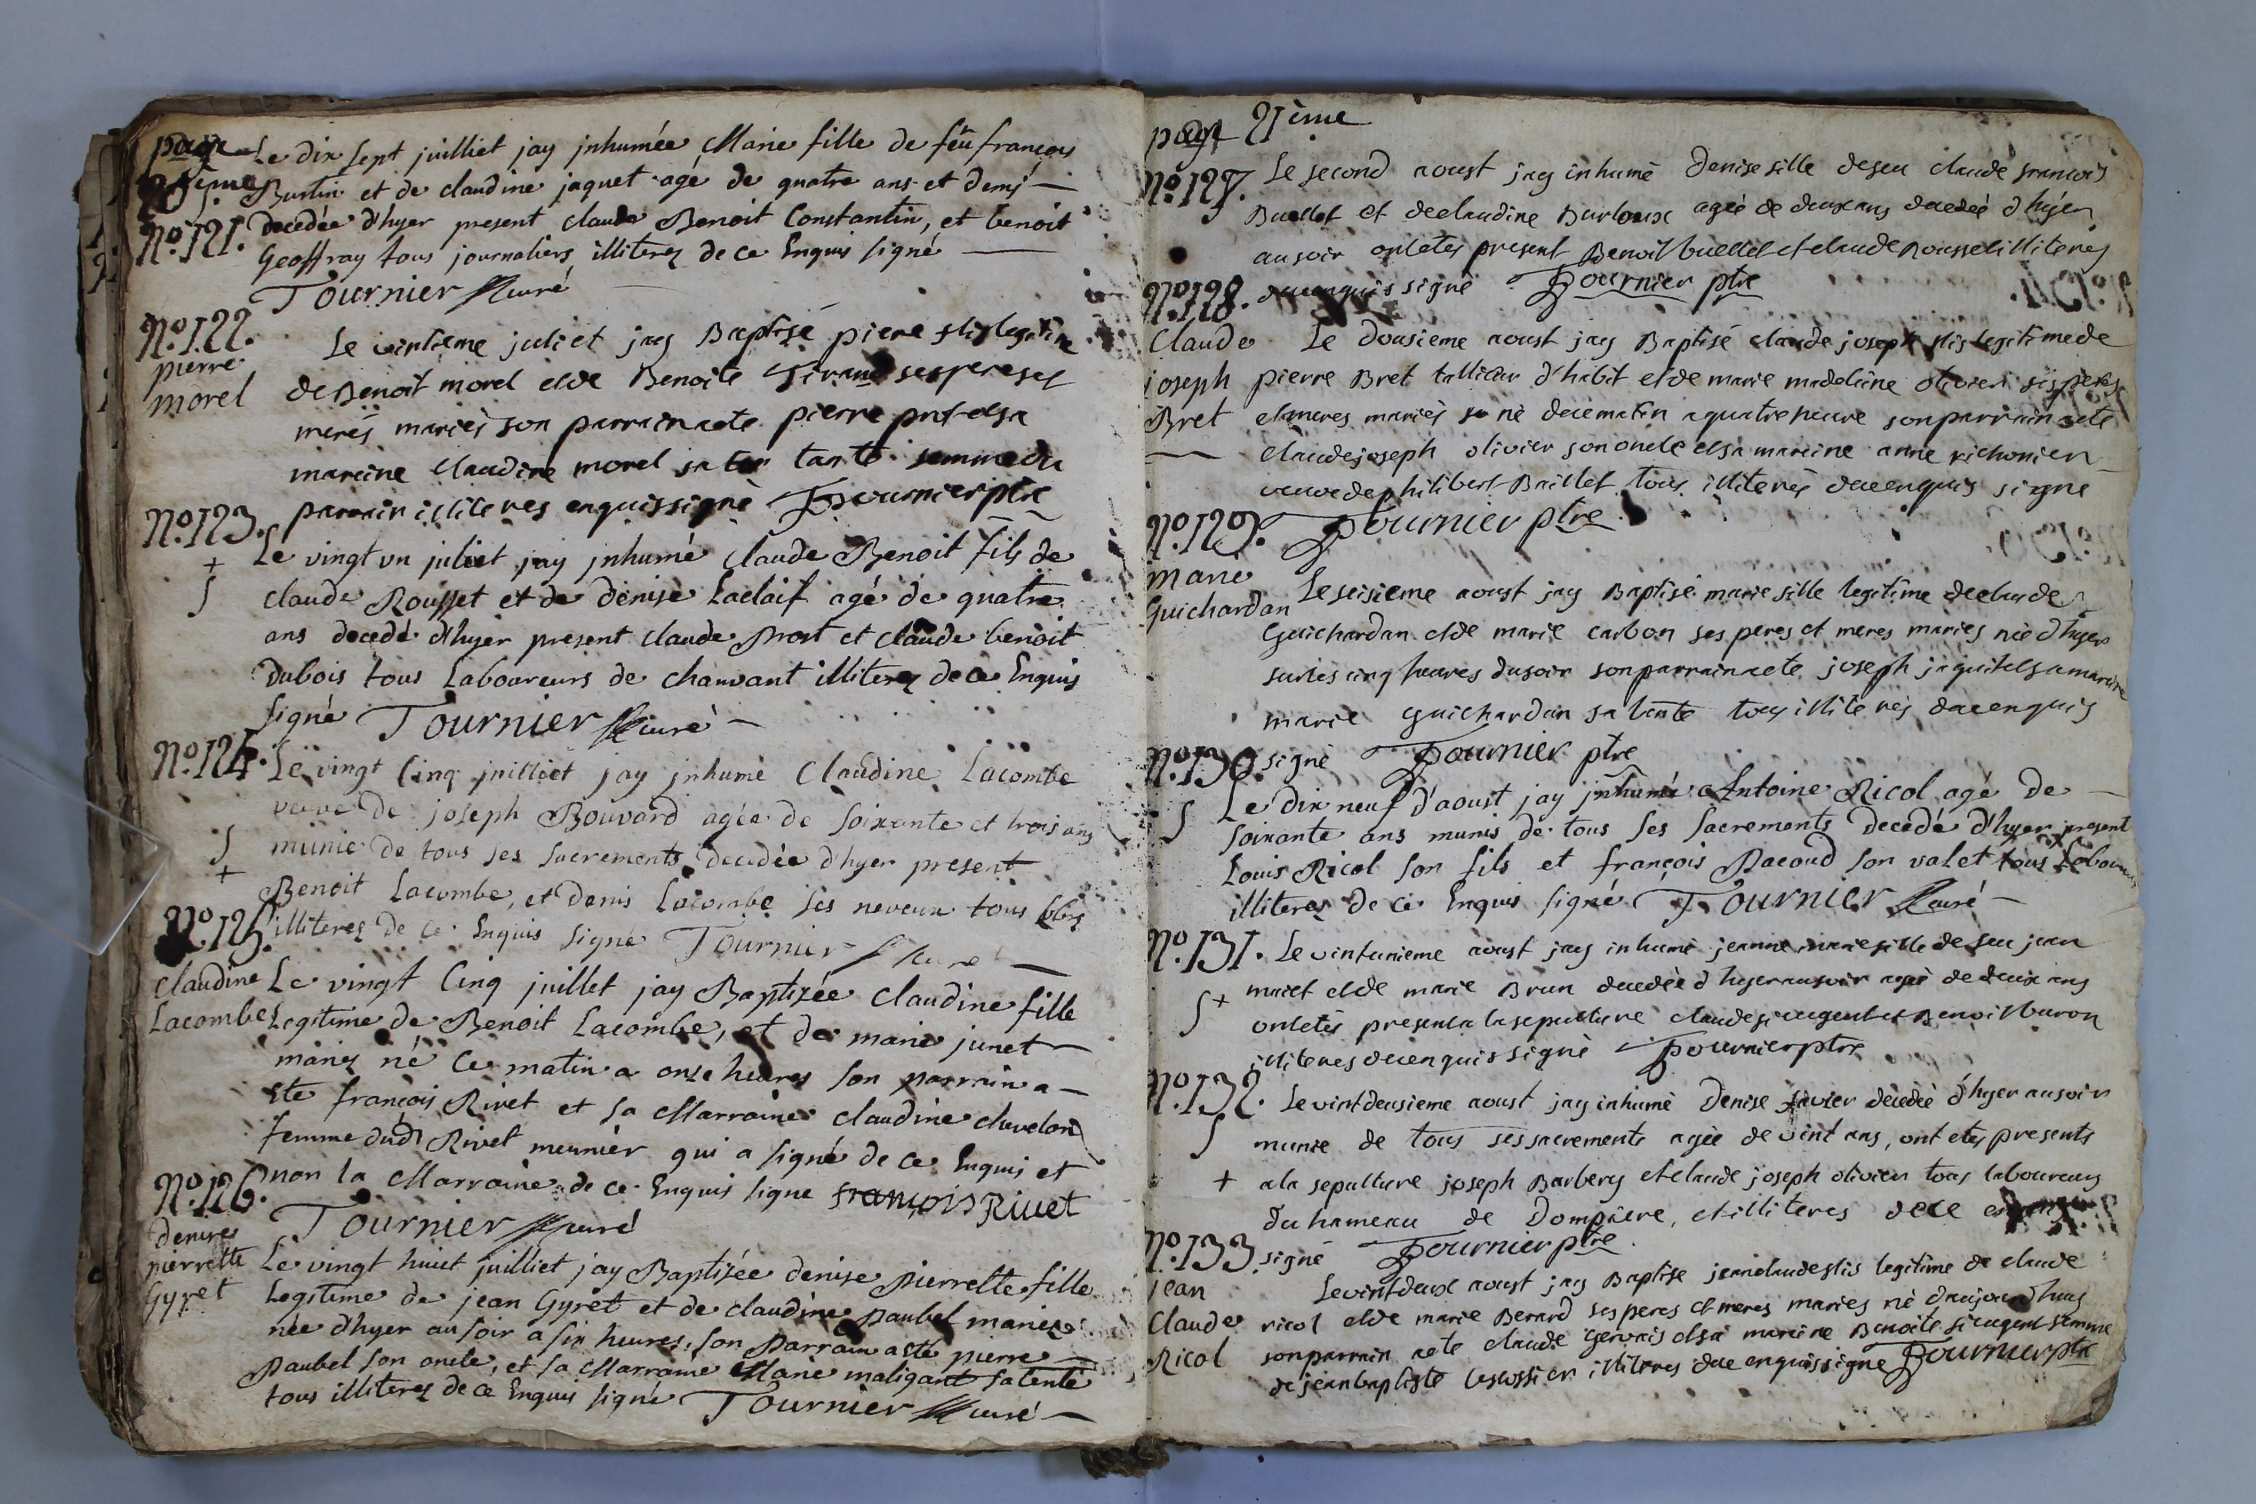 page
20eme
Le dix sept juilliet jay jnhumée Marie fille de feü françois
Burtin et de claudine jaquet agé de quatre ans et demj
No. 121.
decedée d'hyer present claude Benoit Constantin, et benoit
Geoffray tous journaliers illiterez de ce Enquis signé
Tournier curé
No. 122.
pierre
morel
Le vintieme juliet jay Baptisé piere fils legitime
de Benoit morel et de Benoite Girand ses peres et
merés mariés son parrain a ete pierre et sa
maraine Claudine morel sa tante femme du
parrain illiteres enquis signè Tournier ptre
No. 123.
Le vingt un juliet jay jnhumé Claude Benoit fils de
claude Rousset et de denise Laclaif agé de quatre
ans decedé d'hyer present claude Prost et claude benoit
Dubois tous Laboureurs de chauvant illiterez de ce Enquis
signé Tournier curé
No. 124.
Le vingt Cinq juilliet jay jnhumé Claudine Lacombe
veuve de joseph Bouvard agée de soixante et trois ans
munie de tous ses sacrements decedée d'hyer present
Benoit Lacombe, et Denis Lacombe ses neveux tous lbrs
illiterez de ce Enquis signé Tournier curé
No. 125.
Claudine
Lacombe
Le vingt Cinq juillet jay Baptizée Claudine fille
Legitime de Benoit Lacombe, et de marie junet
mariez né ce matin a onze heures son parrain a
ete françois Rivet et sa Marraine claudine chevelon
femme dud Rivet meunier qui a signé de ce Enquis et
non la Marraine de ce Enquis signe françois Rivet
Tournier curé
No. 126.
denise
pierrette
Gyret
Le vingt huict juilliet jay Baptizée denise Pierrette fille
Legitime de jean Gyrét et de claudine paubel mariez
née d'hyer au soir a six heures, son Parrain a ete pierre
Paubel son oncle, et sa Marraine Marie maligant sa tente
tous illiterez de ce Enquis signé Tournier curé
page 21ème
No. 127.
Le second aoust jay inhumè denise fille de feu claude francois
Buellet et de claudine Burloux ageé de deux ans decedeé d'hyer
au soir ont etes present Benoit buellet et claude Rousset illiteres
de ce enquis signé Tournier ptre
No. 128.
Claude
joseph
Bret
Le dousieme aoust jay Baptisé claude joseph fils legitime de
pierre Bret tallieur d'habit et de marie madeleine olivier ses peres
et meres mariés nè de ce matin a quatre heure son parrain a ete
claude joseph olivier son oncle et sa maraine anne richonier
veuve de philibert Baillet tous illiterés de ce enquis signe
Tournier ptre
No. 129.
Marie
Guichardan
Le seisieme aoust jay Baptisé marie fille legitime de claude
Guichardan et de marie carbon ses peres et meres maries neè d'hyer
sur les cinq heures du soir son parrain a ete joseph jaquit et sa maraine
marie Guichardan sa tante tous illiterès de ce enquis
signè Tournier ptre
No. 130.
Le dix neuf d'aoust jay jnhumé Antoine Ricol agé de
soixante ans munis de tous ses sacrements decedé d'hyer present
Louis Ricol son fils et françois Pacoud son valet tous Laboureurs
illiterez de ce Enquis signé Tournier curé
No. 131.
Le vintunieme aoust jay inhumé jeanne marie fille de feu jean
maret et de marie Brun decedèe d hyer au soir ageè de deux ans
ont etès present a la sepulture claude sieugent et Benoit buron
illiteres de ce enquis signè Tournier ptre
No. 132.
Le vintdeusieme aoust jay inhumè denise favier decedeè d'hyer au soir
munie de tous ses sacrements ageè de vint ans, ont etes presents
a la sepulture joseph Barbery et claude joseph olivier tous laboureurs
du hameau de Dompiere, et illiteres de ce
signé Tournier ptre
No. 133
jean
Claude
Ricol
Le vintdeux aoust jay Baptise jean claude fils legitime de claude
ricol et de marie Berard ses peres et meres maries nè d'aujourdhuy
son parrain a ete claude Gervais et sa maraine Benoite sieugent femme
de jean baptiste illiteres de ce enquis signe Tournier ptre